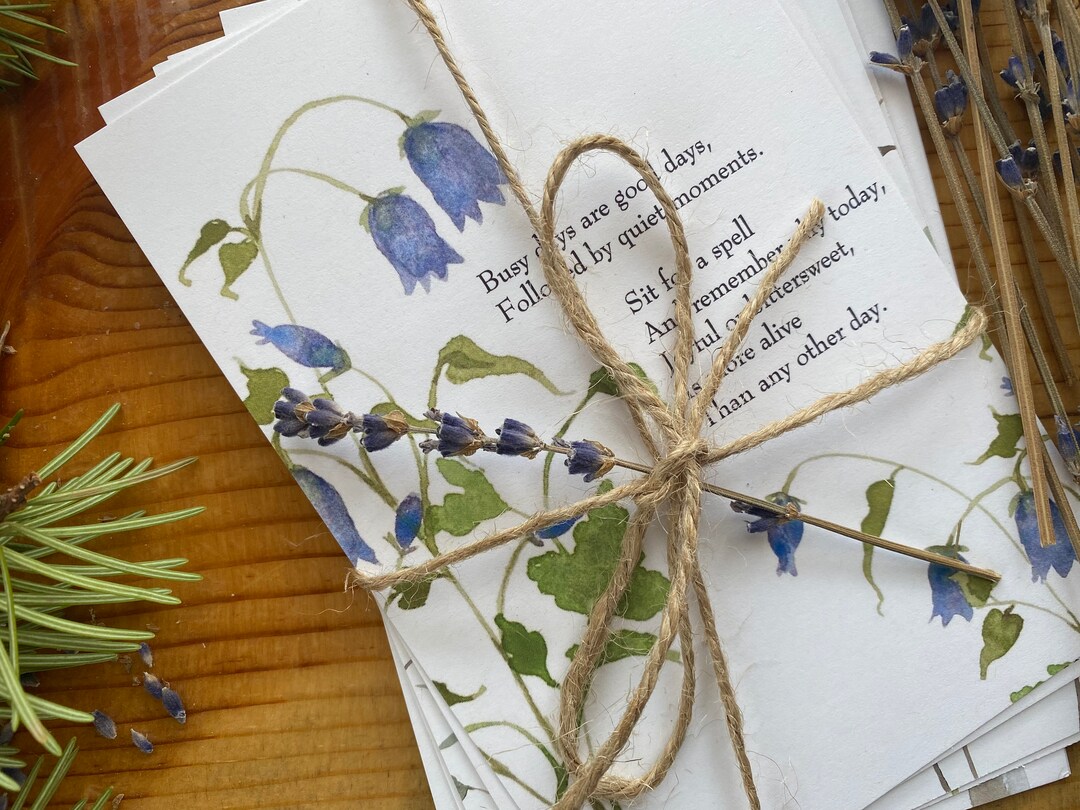 Busy days are good days,
Followed by quiet moments.
Sit for a spell
And remember day today,
Joyful or bittersweet,
Is more alive
Than any other day.